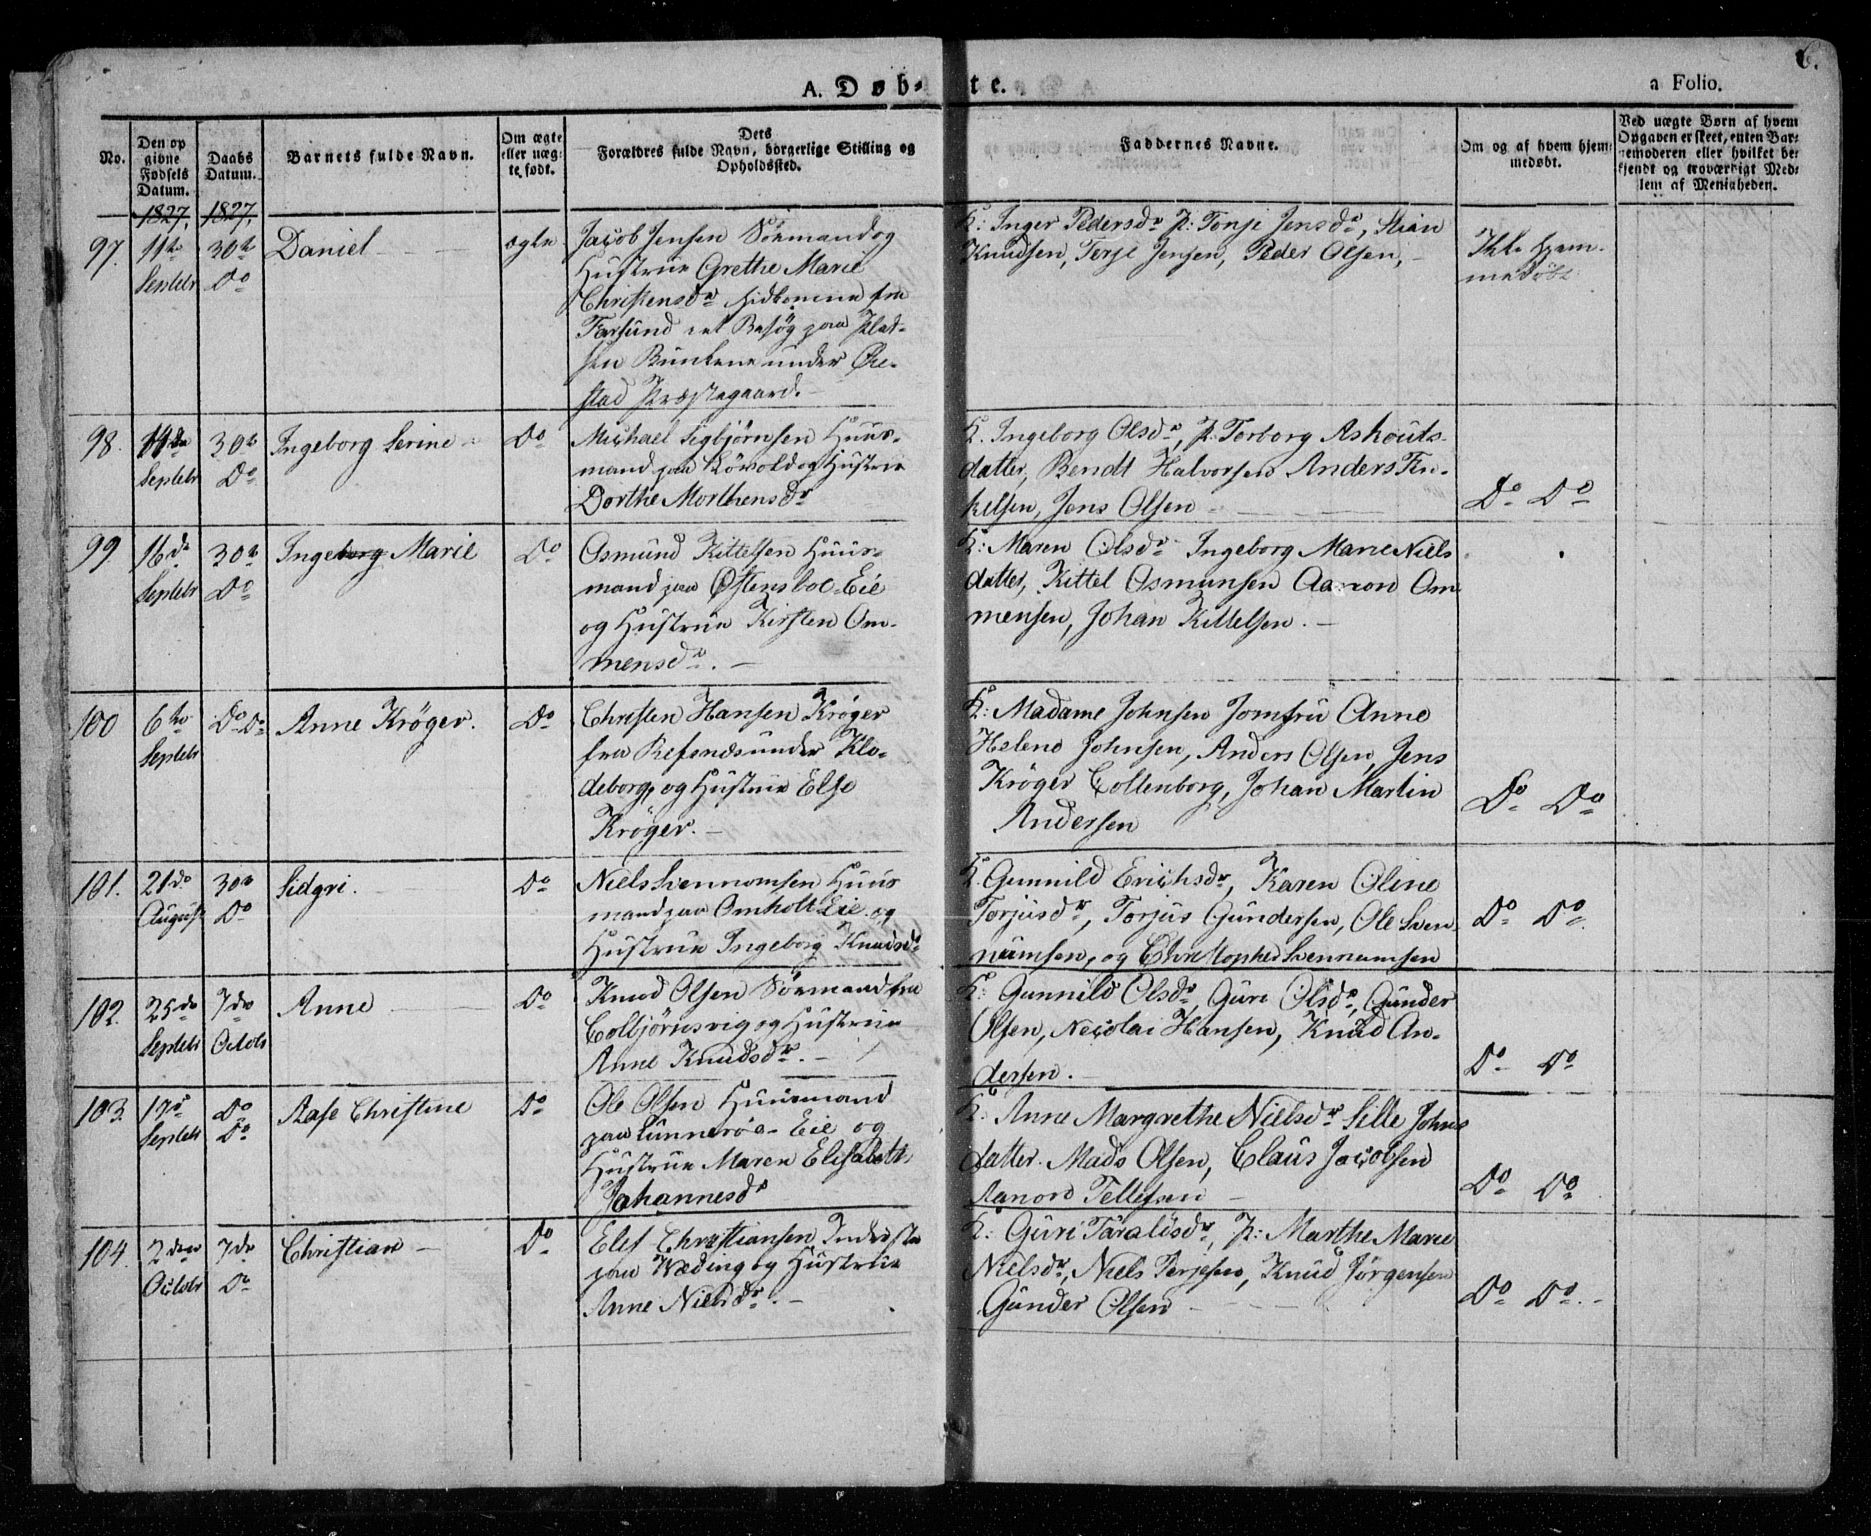 A. Døb-te.
a Folio.
6.
No.
Den op
givne
Fødsels
Datum.
Daabs
Datum.
Barnets fulde Navn.
Om ægte
eller uæg-
te født.
Dets
Forældres fulde Navn, borgerlige Stilling og
Opholdssted.
Faddernes Navne.
Om og af hvem hjem-
medøbt.
Ved uægte Børn af hvem
Opgaven er skeet, enten Bar-
nemoderen eller hvilket be-
kjendt og troværdigt Med-
lem af Menigheden.
1827. 1827.
97.
11te
Septebr
30te
Do
Daniel
ægte
Jacob Jensen Sömand og
Hustrue Grethe Marie
Christensdr hidkomne fra
Farsund i et Besøg paa Plad-
sen Bunkene under Øie-
stad Præstegaard.
K: Inger Pedersdr P: Tonje Jensdr, Stian
Knudsen, Terje Jensen, Peder Olsen,
Ikke hjem-
medøbt
98.
Septebr
30te
Do
Ingeborg Serine
Do
Michael Sigbjørnsen Huus-
mand paa og Hustrue
Dorthe Morthensdr
K. Ingeborg Olsdr, P: Torborg Askouts-
datter, Bendt Halvorsen Anders Ten-
kelsen, Jens Olsen
Do Do
99.
16de
Septebr
30te
Do
Ingeborg Marie
Do
Osmund Kittelsen Huus-
mand paa Østensboe-Eie
og Hustrue Kirsten Om-
mensdr.
K: Maren Olsdr Ingeborg Marie Niels
datter, Kittel Osmunsen Aanon Om
mensen, Johan Kittelsen.
100
6te
Septebr
Do Do
Anne Kröger.
Do
Christen Hansen Kröger
fra Refsnes under Klo-
deborg, og Hustrue Else
Kröger.
K: Madame Johnsen Jomfru Anne
Helene Johnsen, Anders Olsen, Jens
Kröger Collenborg, Johan Martin
Andersen
Do Do
101.
21de
August
30te
Do
Sidgri.
Do
Niels Svennomsen Huus
mand paa Omholt-Eie og
Hustrue Ingeborg Knudsdr
K. Gunnild Erichsdr, Karen Oline
Torjusdr, Torjus Gundersen, Ole Sven
numsen, og Christopher Svennumsen
Do Do
102.
25de
Septebr
7de
Octobr
Anne
Do
Knud Olsen Sömand fra
Colbjörnsvig og Hustrue
Anne Knudsdr.
K: Gunnild Olsdr, Guri Olsdr, Gunder
Olsen, Nicolai Hansen, Knud An-
dersen.
Do Do
103.
17de
Septebr
Do
Do
Aase Christine
Do
Ole Olsen Huusmand
paa Lunneröe-Eie og
Hustrue Maren Elisabeth
Johannesdr
K: Anne Margrethe Nielsdr Sille Johns
datter. Mads Olsen, Claus Jacobsen
Aanon Tellefsen
Do Do
104.
2den
Octobr
7de
Do
Christian
Do
Elef Christiansen Inderste
paa Wæding og Hustrue
Anne Nielsdr.
K: Guri Taraldsdr, P: Marthe Marie
Nielsdr, Niels Terjesen, Knud Jörgensen
Gunder Olsen
Do Do.